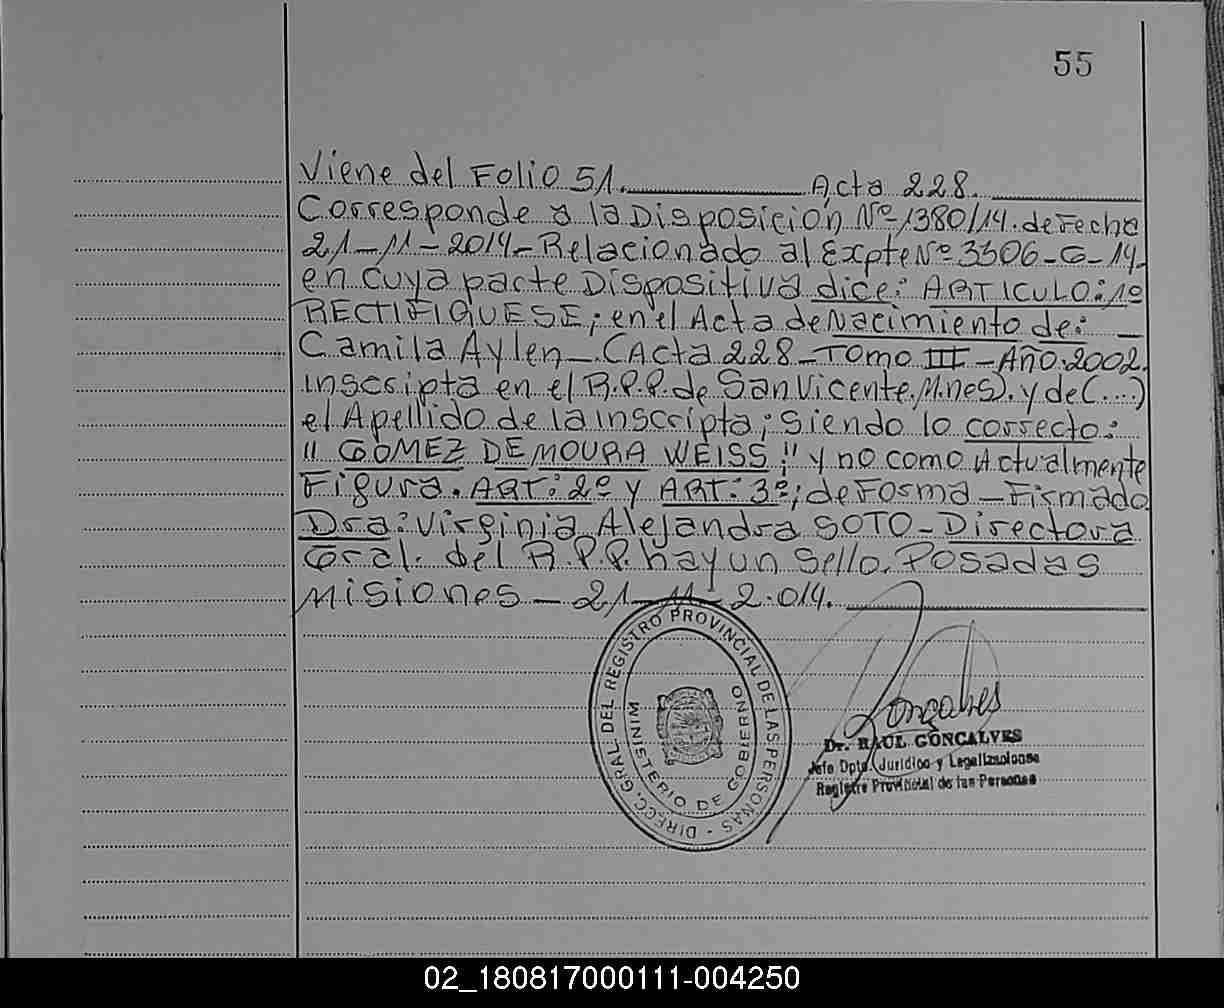 55
Viene del Folio 51. Acta 228.
Corresponde a la Disposicion Nº 1380/14. de Fecha
21-11-2014- Relacionado al Expte Nº 3306-G-14.
en cuya parte Dispositiva dice: ARTICULO: 1º
RECTIFIQUESE; en el Acta de Nacimiento de: -
Camila Aylen-. (Acta 228-Tomo III-Año.2002.
Inscripta en el R.P.P. de San Vicente. M.nes). y de (....)
el Apellido de la inscripta; siendo lo correcto:
"GOMEZ DE MOURA WEISS;" y no como Actualmente
Figura. ART: 2º y ART: 3º; de Forma - Firmado
Dra: Virginia Alejandra SOTO - Directora
Gral. del R.P.P. hay un sello. Posadas
Misiones - 21-11-2.014.
DIRECC. GRAL. DEL REGISTRO PROVINCIAL DE LAS PERSONAS -
MINISTERIO DE GOBIERNO
Goncalves
Dr. RAUL GONCALVES
Jefe Dpto. Jurídico y Legalizaciones
Registro Provincial de las Personas
02_180817000111-004250